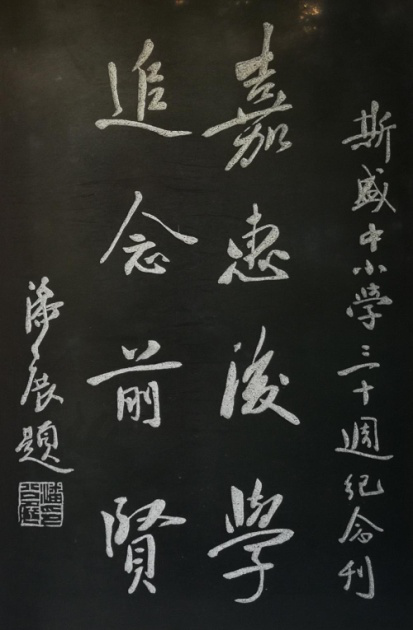 斯盛中小學三十週紀念刊
嘉惠後學
追念前賢
潘公展題